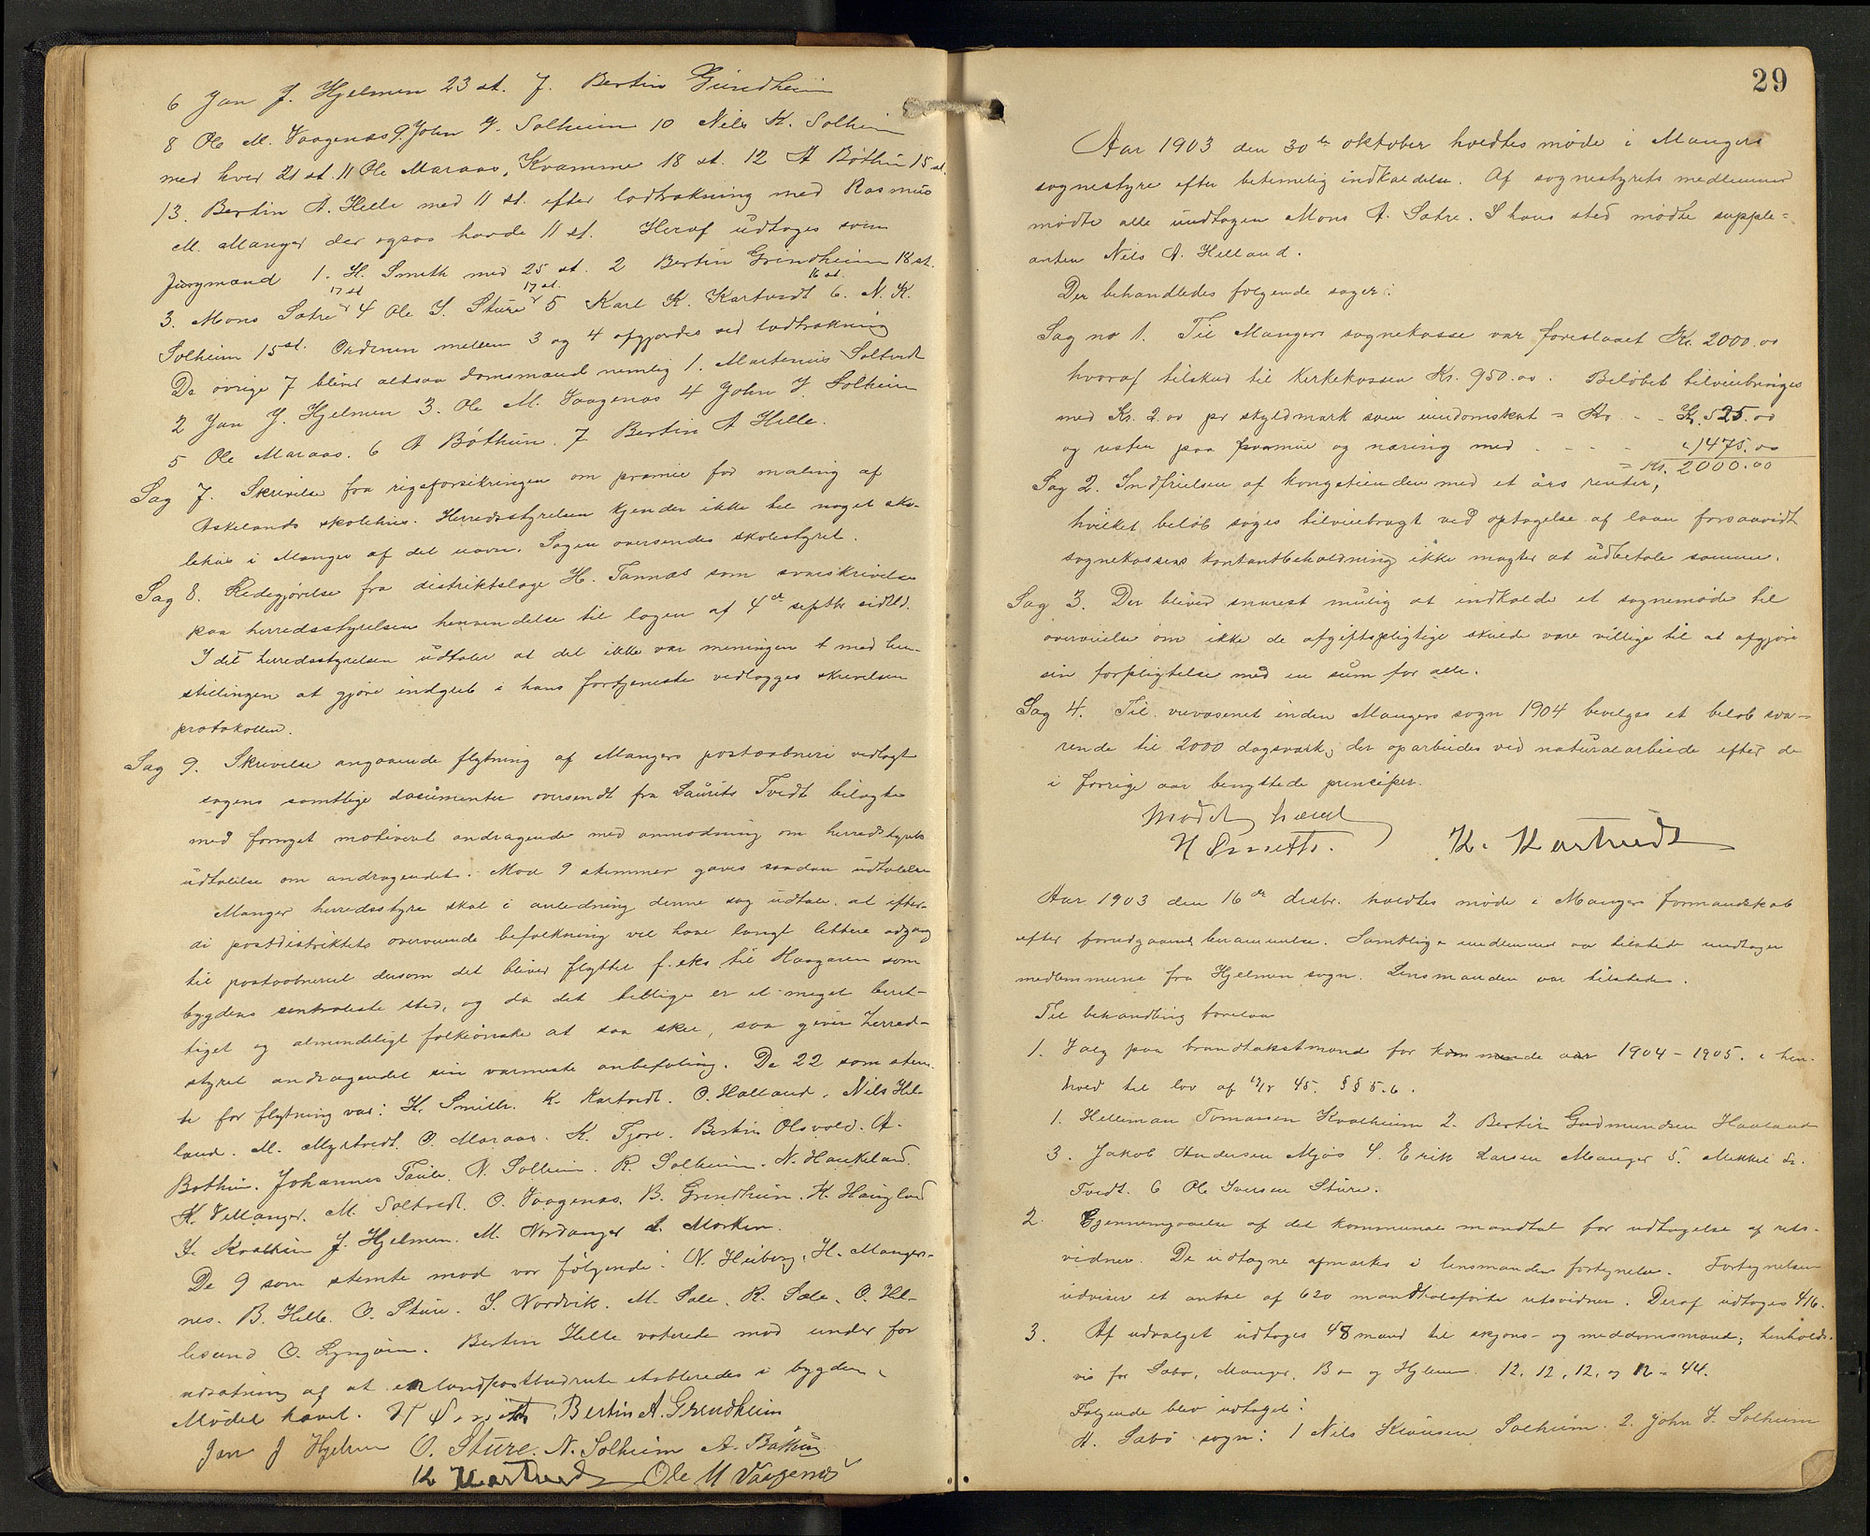 6 Jan J. Hjelmen 23 st. 7. Bertin Grindheim
8 Ole M. Vaagenæs 9. John J. Solheim 10 Nils K. Solheim
med hver 21 st. 11 Ole Maraas, Kvamme 18 st. 12 A Bøthun 15 st.
13. Bertin A. Helle med 11 st. efter lodtrækning med Rasmus
M. Manger der ogsaa havde 11 st. Heraf udtoges som
Jurymænd 1. H. Smith med 25 st. 2 Bertin Grindheim 18 st.
17 st 17 st. 16 st.
3. Mons Sætre 4 Ole I. Sture 5 Karl K. Kartvedt 6. N. K.
Solheim 15 st. Ordenen mellem 3 og 4 afgjordes ved lodtrækning
De øvrige 7 bliver altsaa domsmænd nemlig 1. Martenius Soltvedt
2 Jan J. Hjelmen 3. Ole M. Vaagenæs 4 John J. Solheim
5 Ole Maraas. 6 A Bøthun. 7 Bertin A Helle.
Sag 7. Skrivelse fra rigsforsikringen om præmie for maling af
Askelands skolehus. Herredsstyrelsen kjender ikke til noget sko-
lehus i Manger af det navn. Sagen oversendes skolestyret.
Sag 8. Redegjørelse fra distriktslæge H. Tannæs som svarskrivelse
paa herredsstyrelsens henvendelse til lægen af 4de septbr sidstl.
I det herredsstyrelsen udtaler at det ikke var meningen med hen-
stillingen at gjøre indgreb i hans fortjeneste vedlægges skrivelsen
protokollen.
Sag 9. Skrivelse angaaende flytning af Mangers postaabneri vedlagt
sagens samtlige documenter oversendt fra Laurits Tvedt bilagte
med fornyet motiveret andragende med anmodning om herredsstyrets
udtalelse om andragendet. Mod 9 stemmer gaves saadan udtalelse
Manger herredsstyre skal i anledning denne sag udtale at efter-
di postdistriktets overveiende befolkning vil have langt lettere adgang
til postaabneriet dersom det bliver flyttet f. eks. til Haagaren som
bygdens sentraleste sted, og da det tillige er et meget beret-
tiget og almindeligt folkeønske at saa skee, saa giver herred-
styret andragendet sin varmeste anbefaling. De 22 som stem-
te for flytning var: H. Smith. K. Kartvedt. O. Halland. Nils Hel-
land. M. Myrtvedt. O. Maraas. K. Fjore. Bertin Olsvold. A.
Bøthun. Johannes Taule. N. Solheim. R. Solheim. N. Haukeland.
K. Villanger. M. Soltvedt. O. Vaagenæs. B. Grindheim. K. Haugland
I. Kvalheim J. Hjelmen. M. Nordanger A. Morken.
De 9 som stemte mod var følgende: N. Heiberg. H. Manger-
nes. B. Helle. O. Sture. S. Nordvik. M. Sæle. R. Sæle. O. Hel-
lesund O. Lyngøien. Bertin Helle voterede mod under for
udsætning af at en landpostbudrute etableredes i bygden.
Mødet hævet. H Smith Bertin A. Grindheim
Jan J Hjelmen O. Sture. N. Solheim A. Bøthun
K Kartvedt Ole M Vaagenæs
29
Aar 1903 den 30te oktober holdtes møde i Mangers
sognestyre efter betimelig indkaldelse. Af sognestyrets medlemmer
mødte alle undtagen Mons A. Sætre. I hans sted mødte supple-
anten Nils A. Helland.
Der behandledes følgende sager:
Sag no 1. Til Mangers sognekasse var foreslaaet Kr. 2000.00
hvoraf tilskud til kirkekassen Kr. 950.00. Beløbet tilveiebringes
med Kr. 2.00 pr skyldmark som eiendomsskat = Kr. 525.00
og resten paa formue og næring med - - - " 1475.00
= Kr. 2000.00
Sag 2. Indfrielsen af kongetienden med et års renter,
hvilket beløb søges tilveiebragt ved optagelse af laan forsaavidt
sognekassens kontantbeholdning ikke magter at udbetale samme.
Sag 3. Der bliver snarest mulig at indkalde et sognemøde til
overveielse om ikke de afgiftspligtige skulde være villige til at afgjøre
sin forpligtelse med en sum for alle.
Sag 4. Til veivæsenet inden Mangers sogn 1904 bevilges et beløb sva-
rende til 2000 dagsværk, der oparbeides ved naturalarbeide efter de
i forrige aar benyttede principer.
Mødet hævet
H Smith. K. Kartvedt
Aar 1903 den 16de desbr. holdtes møde i Manger formandskab
efter forudgaaende berammelse. Samtlige medlemmer var tilstede undtagen
medlemmerne fra Hjelmen sogn. Lensmanden var tilstede.
Til behandling forelaa
1. Valg paa brandtakstmænd for kommende aar 1904-1905. i hen-
hold til lov af 45. §§ 5-6.
1. Helleman Tomassen Kvalheim 2. Bertin Gudmundsen Haaland
3. Jakob Andersen Mjøs 4. Erik Larsen Manger 5. Mikkel Sr.
Tvedt. 6 Ole Iversen Sture.
2. Gjennemgaaelse af det kommunale mandtal for udtagelse af rets-
vidner. De udtagne afmærkes i lensmandens fortegnelse. Fortegnelsen
udviser et antal af 620 mandtalsførte retsvidner. Deraf udtoges 416.
3. Af udvalget udtoges 48 mand til skjøns- og meddomsmænd; henholds-
vis for Sæbø, Manger, Bø og Hjelmen. 12, 12, 12, og 12 = 44.
Følgende blev udtaget:
A. Sæbø sogn: 1 Nils Klausen Solheim. 2. John J. Solheim